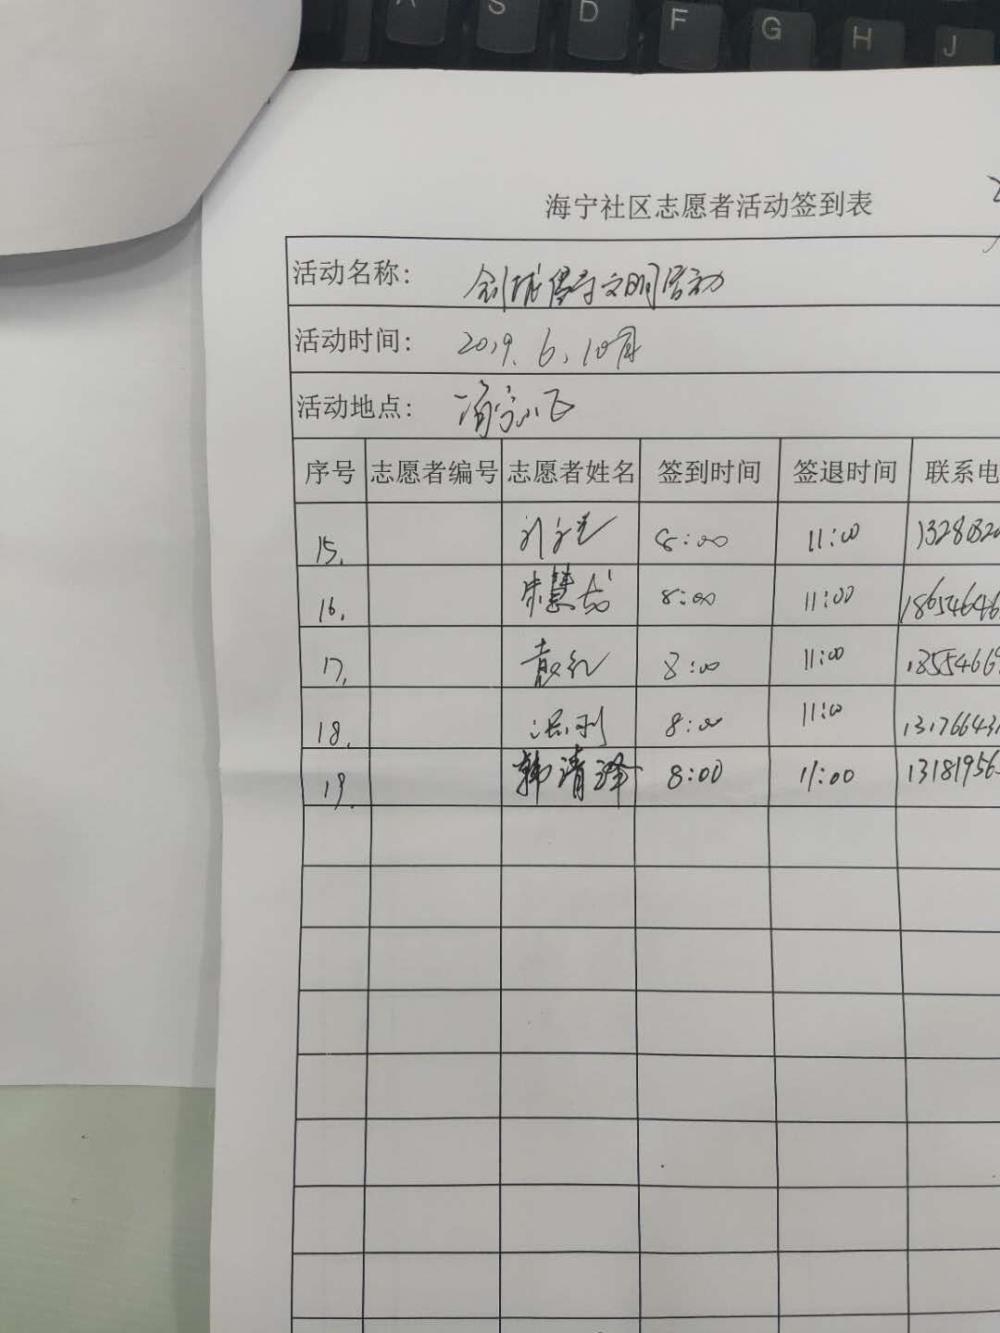 A S D F G H J
海宁社区志愿者活动签到表
活动名称: 创城倡导文明活动
活动时间: 2019.6.10
活动地点: 海宁小区
序号 志愿者编号 志愿者姓名 签到时间 签退时间 联系电
15. 8:00 11:00 1328032
16. 朱慧 8:00 11:00 18654646
17. 8:00 11:00 1855466
18. 8:00 11:00 13176643
19. 韩清泽 8:00 11:00 1318195